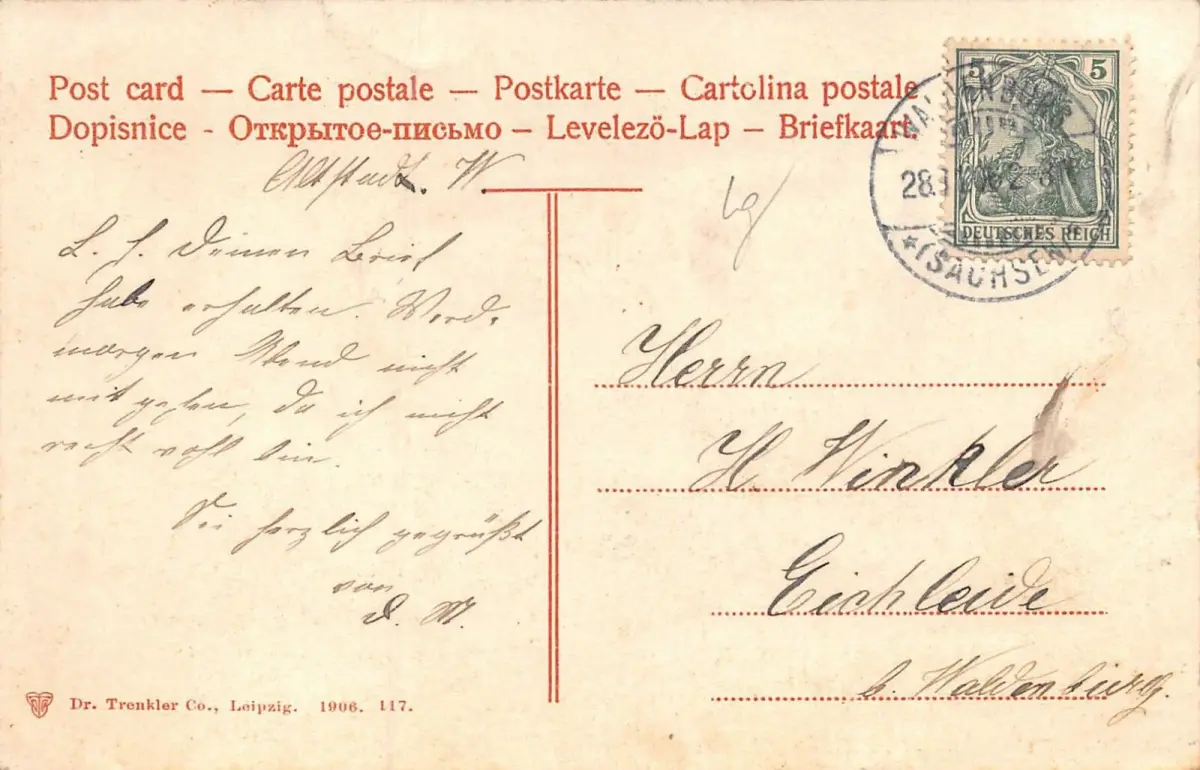 Post card — Carte postale — Postkarte — Cartolina postale
Dopisnice - Открытое-письмо — Levelező-Lap — Briefkaart.
Altstadt. W.
L. H. Deinen Brief
habe erhalten. Werde
morgen Abend nicht
mit gehen, da ich nicht
recht wohl bin.
Sei herzlich gegrüßt
von
d. M.
5 5
DEUTSCHES REICH
WALDENBURG
28. 2-3 N
* (SACHSEN)
Herrn
H Winkler
Eichleide
b. Waldenburg.
Dr. Trenkler Co., Leipzig. 1906. 117.